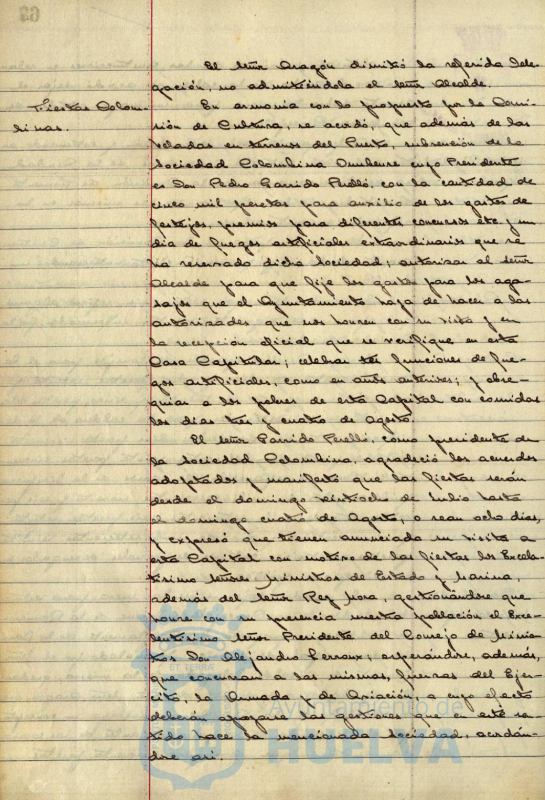 63
El Señor Aragón dimitió la referida dele-
gación, no admitiéndola el Señor Alcalde.
Fiestas Colom-
binas.
En armonia con lo propuesto por la Comi-
sión de Cultura, se acordó, que además de las
veladas en terrenos del Puerto, subvención de la
Sociedad Colombina Onubense cuyo Presidente
es Don Pedro Garrido Perelló, con la cantidad de
cinco mil pesetas para auxilio de los gastos de
festejos, premios para diferentes concursos etc y un
dia de fuegos artificiales extraordinarios que se
ha reservado dicha Sociedad; autorizar al Señor
Alcalde para que fije los gastos para los aga-
sajos que el Ayuntamiento haya de hacer a las
autoridades que nos honren con su visita y en
la recepción oficial que se verifique en esta
Casa Capitular; celebrar tres funciones de fue-
gos artificiales, como en años anteriores; y obse-
quiar a los pobres de esta Capital con comidas
los dias tres y cuatro de Agosto.
El Señor Garrido Perelló, como presidente de
la Sociedad Colombina, agradeció los acuerdos
adoptados y manifestó que las fiestas serán
desde el domingo veintiocho de Julio hasta
el domingo cuatro de Agosto, o sean ocho dias,
y expresó que tienen anunciada su visita a
esta Capital con motivo de las fiestas los Excelen-
tisimo Señores Ministros de Estado y Marina,
además del Señor Rey Mora, gestionándose que
honre con su presencia nuestra población el Exce-
lentisimo Señor Presidente del Consejo de Minis-
tros Don Alejandro Lerroux; esperándose, además,
que concurran a las mismas, fuerzas del Ejer-
cito, la Armada y de Aviación, a cuyo efecto
deberán apoyarse las gestiones que en este sen-
tido hace la mencionada Sociedad, acordán-
dose asi.
Ayuntamiento de
HUELVA